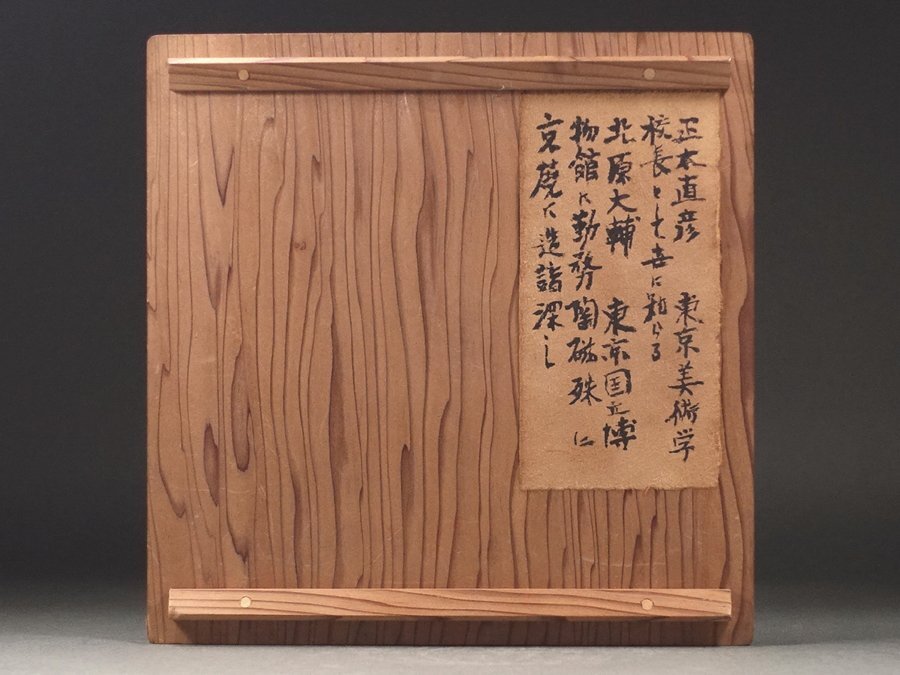 正木直彦 東京美術学
校長として世に知らる
北原大輔 東京国立博
物館に勤務陶磁殊に
京焼に造詣深し